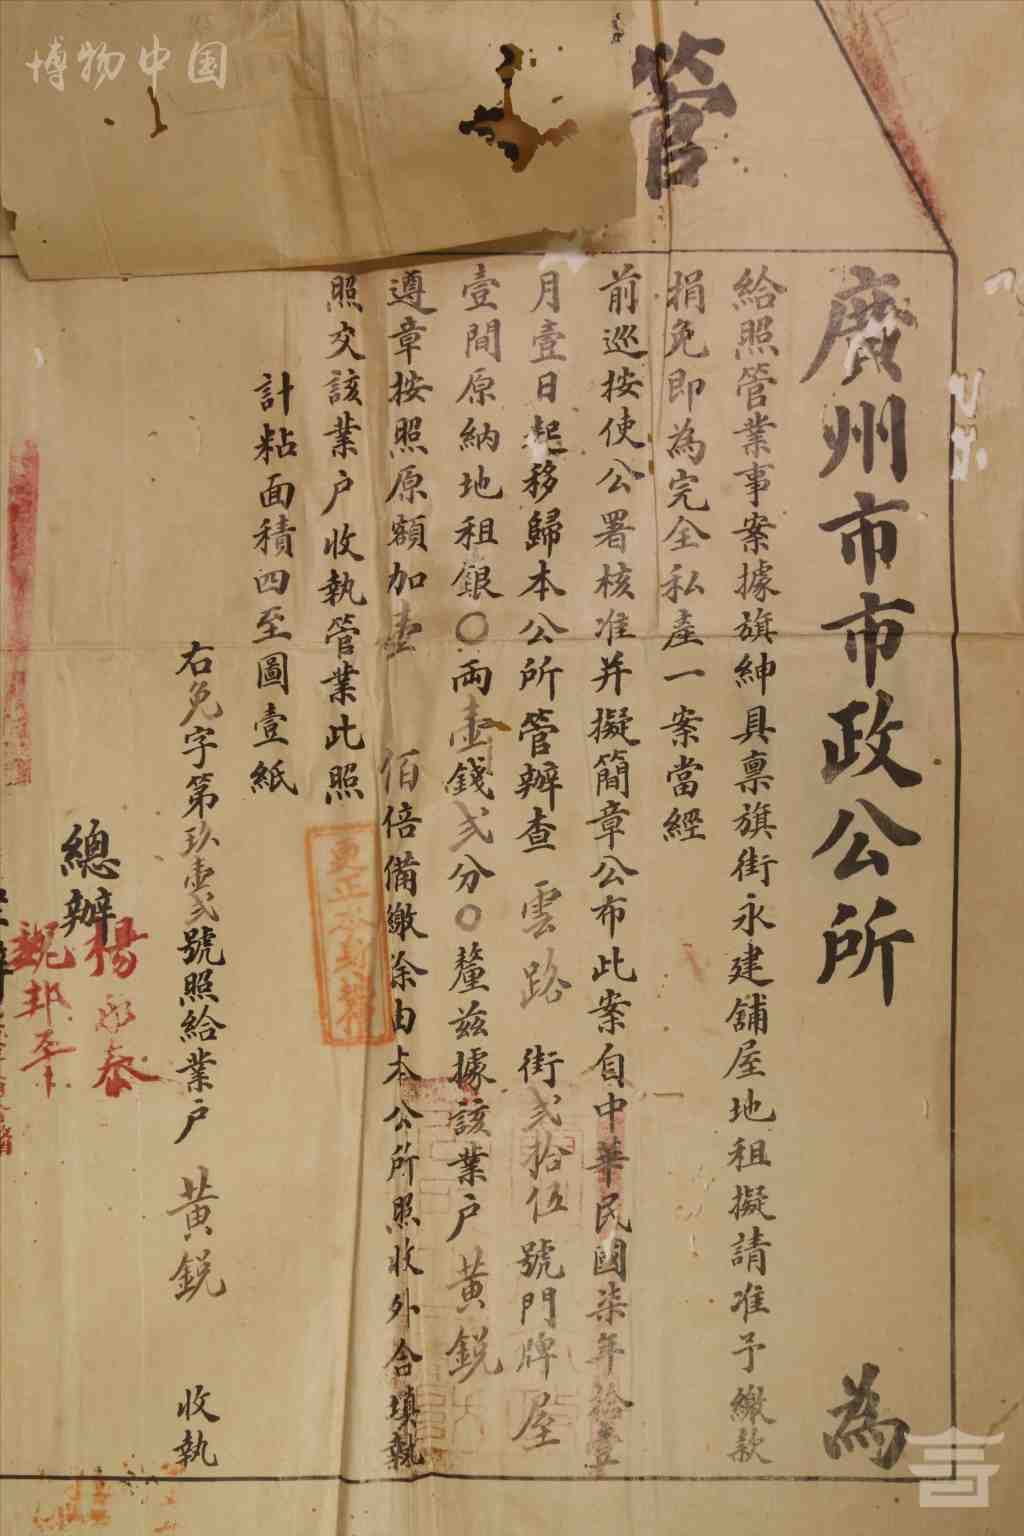 博物中国
管
廣州市市政公所 為
給照管業事案據旗紳具稟旗街永建舖屋地租擬請准予繳款
捐免即為完全私產一案當經
前巡按使公署核准并擬簡章公布此案自中華民國柒年拾壹
月壹日起移歸本公所管辦查 雲路 街弍拾伍號門牌屋
壹間原納地租銀〇兩壹錢弍分〇釐茲據該業户黃鋭
遵章按照原額加壹 佰倍備繳除由本公所照收外合填執
照交該業户收執管業此照
計粘面積四至圖壹紙
右免字第玖壹弍號照給業户 黃鋭 收執
總辦
楊永泰
魏邦平